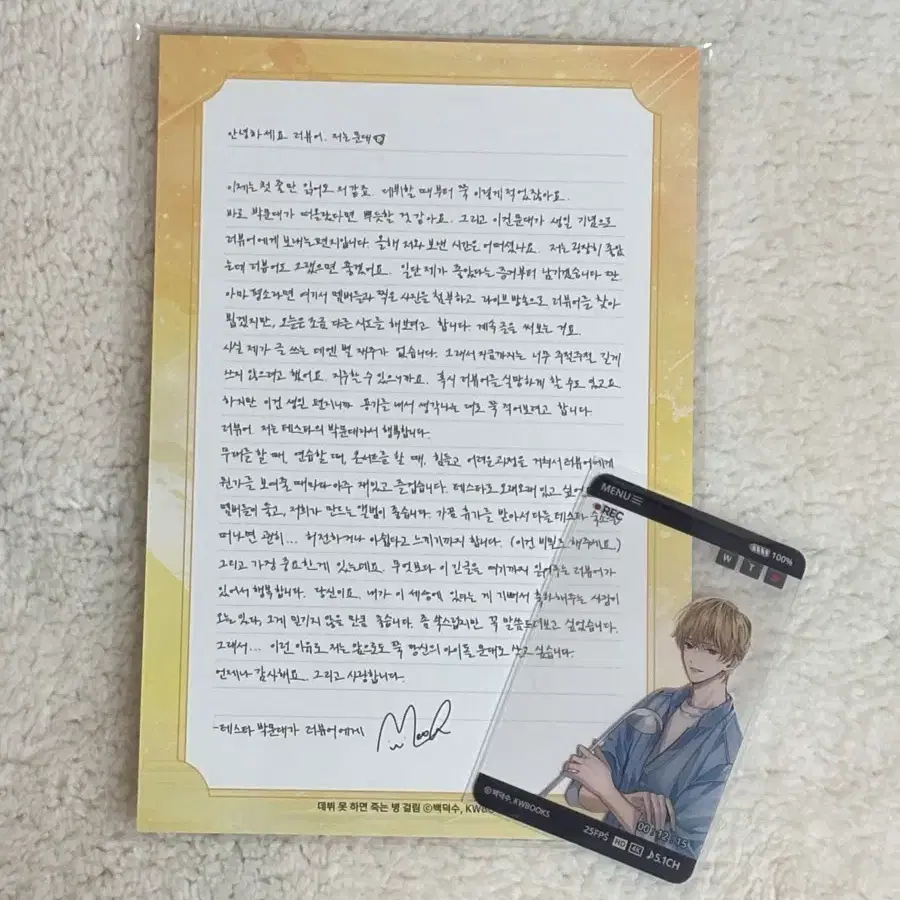 안녕하세요 러뷰어. 저는 문대
이제는 첫 줄만 읽어도 저 같죠. 데뷔할 때부터 쭉 이렇게 적었잖아요.
바로 박문대가 떠올랐다면 뿌듯할 것 같아요. 그리고 이건 문대가 생일 기념으로
러뷰어에게 보내는 편지입니다. 올해 저와 보낸 시간은 어떠셨나요. 저는 굉장히 좋았
는데 러뷰어도 그랬으면 좋겠어요. 일단 제가 좋았다는 증거부터 남기겠습니다 딴
아마 평소라면 여기서 멤버들과 찍은 사진을 첨부하고 라이브 방송으로 러뷰어를 찾아
뵙겠지만, 오늘은 조금 다른 시도를 해보려고 합니다. 계속 글을 써보는 거요.
사실 제가 글 쓰는 데엔 별 재주가 없습니다. 그래서 지금까지는 너무 주절주절 길게
쓰지 않으려고 했어요. 지루할 수 있으니까요. 혹시 러뷰어를 실망하게 할 수도 있고요
하지만 이건 생일 편지니까 용기를 내서 생각나는 대로 쭉 적어보려고 합니다.
러뷰어 저는 테스타의 박문대라서 행복합니다.
무대를 할 때, 연습할 때, 콘서트를 할 때, 힘들고 어려운 과정을 거쳐서 러뷰어에게
뭔가를 보여줄 때마다 아주 재밌고 즐겁습니다. 테스타로 오래오래 있고 싶어
멤버들이 웃고, 저희가 만드는 앨범이 좋습니다. 가끔 휴가를 받아서 다들 테스타 숙소를
떠나면 괜히... 허전하거나 아쉽다고 느끼기까지 합니다. (이건 비밀로 해주세요.)
그리고 가장 중요한 게 있는데요. 무엇보다 이 긴 글을 여기까지 읽어주는 러뷰어가
있어서 행복합니다. 당신이요. 내가 이 세상에 있다는 게 기뻐서 축하해주는 사람이
오늘 있다, 그게 믿기지 않을 만큼 좋습니다. 좀 쑥스럽지만 꼭 말씀드려보고 싶었습니다.
그래서... 이런 이유로 저는 앞으로도 쭉 당신의 아이돌 문대로 살고 싶습니다.
언제나 감사해요. 그리고 사랑합니다.
-테스타 박문대가 러뷰어에게
데뷔 못 하면 죽는 병 걸림 ©백덕수, KWB
MENU
REC
100%
W T
©백덕수, KWBOOKS
00:12:15
25FPS HD 4K ♪5.1CH